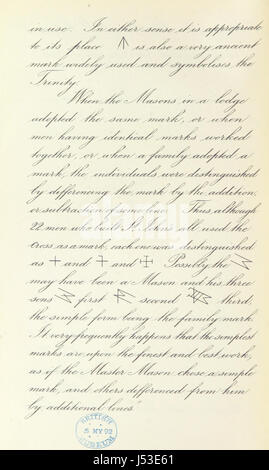 in use. In either sense it is appropriate
to its place is also a very ancient
mark widely used and symbolises the
Trinity.
When the Masons in a lodge
adopted the same mark, or when
men having identical marks worked
together, or when a family adopted a
mark, the individuals were distinguished
by differencing the mark by the addition,
or subtraction of some lines. Thus, although
22 men who built St. all used the
Cross, as a mark, each one was distinguished
as + and and Possibly the
may have been a Mason and his three
sons first second third
the simple form being the family mark
It very frequently happens that the simplest
marks are upon the finest and best work,
as if the Master Mason chose a simple
mark, and others differenced from him
by additional lines."
BRITISH
5 MY 92
MUSEUM
alamy
alamy stock photo
Image ID: J53E61
www.alamy.com